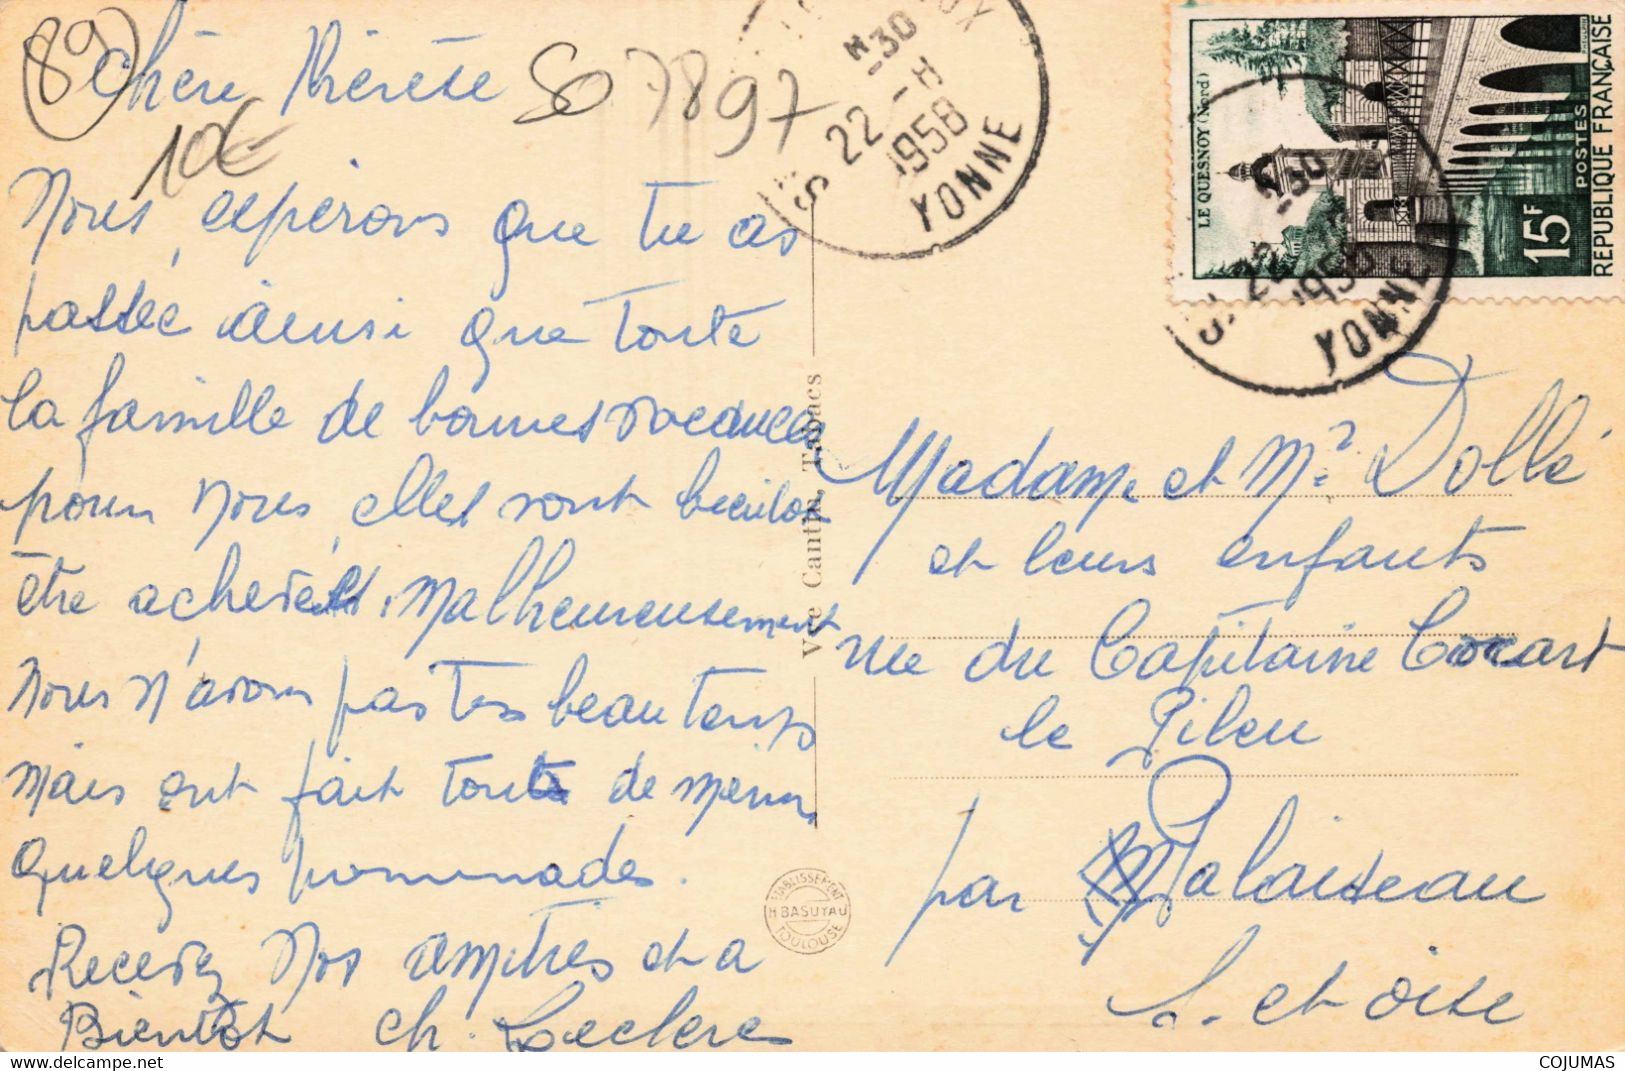 89
Chère Thérèse
SO 7897
10€
Nous espérons que tu as
passée ainsi que toute
la famille de bonnes vacances
pour nous, elles vont bientôt
être acheveés, Malheureusement
nous n'avons pas très beau temps
mais ont fait toute de même
quelques promenades.
Recevez Nos amitiés et a
Bientôt ch. Leclerc
Vve Cantin, Tabacs
ETABLISSEMENT
H BASUYAU
TOULOUSE
30
22 - 8
1958
YONNE
LE QUESNOY (Nord)
15F
POSTES
REPUBLIQUE FRANÇAISE
30
22
1958
YONNE
Madame et Mr Dollé
et leurs enfants
rue du Capitaine Cocart
le Pileu
par Palaiseau
S. et oise
COJUMAS